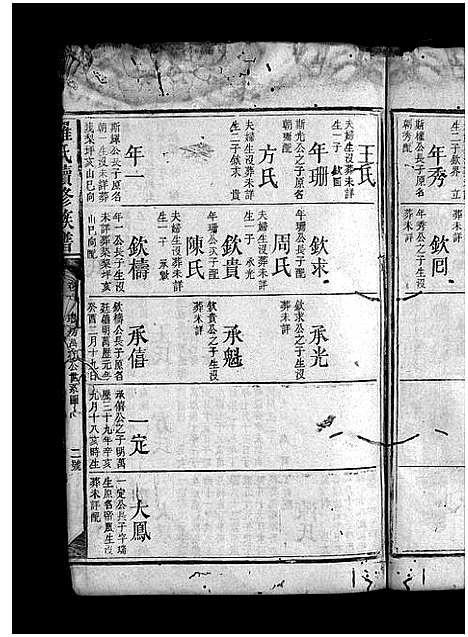 年秀
斯權公長子原名
朝秀
生二子 欽界 立
欽囘
年秀公之子生沒
葬未詳
王氏
夫婦生沒葬未詳
生一子 欽囬
年珊
斯允公之子原名
朝珊
方氏
夫婦生沒葬未詳
生二子 欽求 貴
年一
斯煇公長子原名
朝一生沒未詳葬
伐梨坪亥山巳向
欽求
年珊公長子生沒
葬未詳配
周氏
生一子 承光
欽貴
年珊公次子生沒
葬未詳配
陳氏
夫婦生沒葬未詳
生一子 承魁
欽檮
年一公長子生沒
未詳葬梨梨坪亥
山巳向配
承光
欽求公之子生沒
葬未詳
承魁
欽貴公之子生沒
葬未詳配
承僖
欽檮公長子原名
廷僖明萬歷元年
癸酉二月十九日
一定
承僖公之子明萬
歷三十九年辛亥
九月十八亥時生
大鳳
一定公長子字瑞
生原名
葬未詳配
羅氏續修族譜
二號